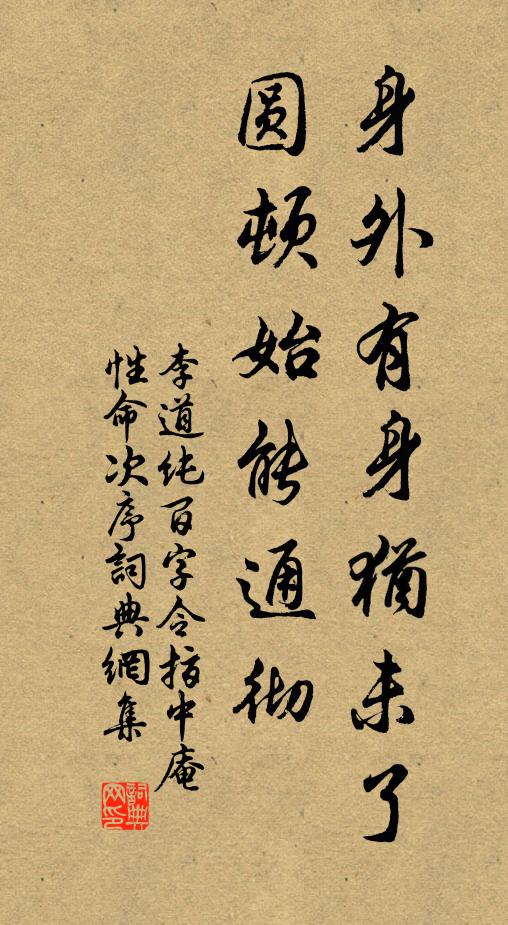 身外有身猶未了
圆頓始能通彻
李道純百字令指中庵
性命次序詞典網集
詞典网印